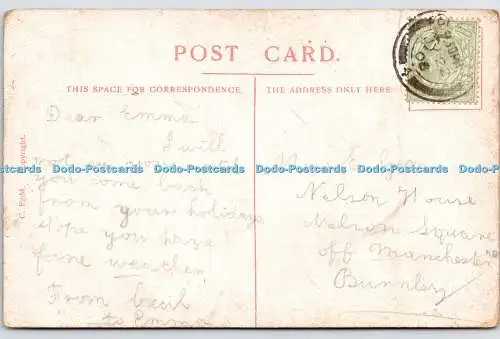 POST CARD.
THIS SPACE FOR CORRESPONDENCE.
THE ADDRESS ONLY HERE
C. F&Co. Copyright.
Dear Emma
I will
you come back
from your holidays.
Hope you have
fine weather.
From Cecil
to Emma
Nelson House
Nelson Square
off Manchester Rd
Burnley
Dodo-Postcards Dodo-Postcards Dodo-Postcards Dodo-Postcards
Dodo-Postcards Dodo-Postcards Dodo-Postcards Dodo-Postcards